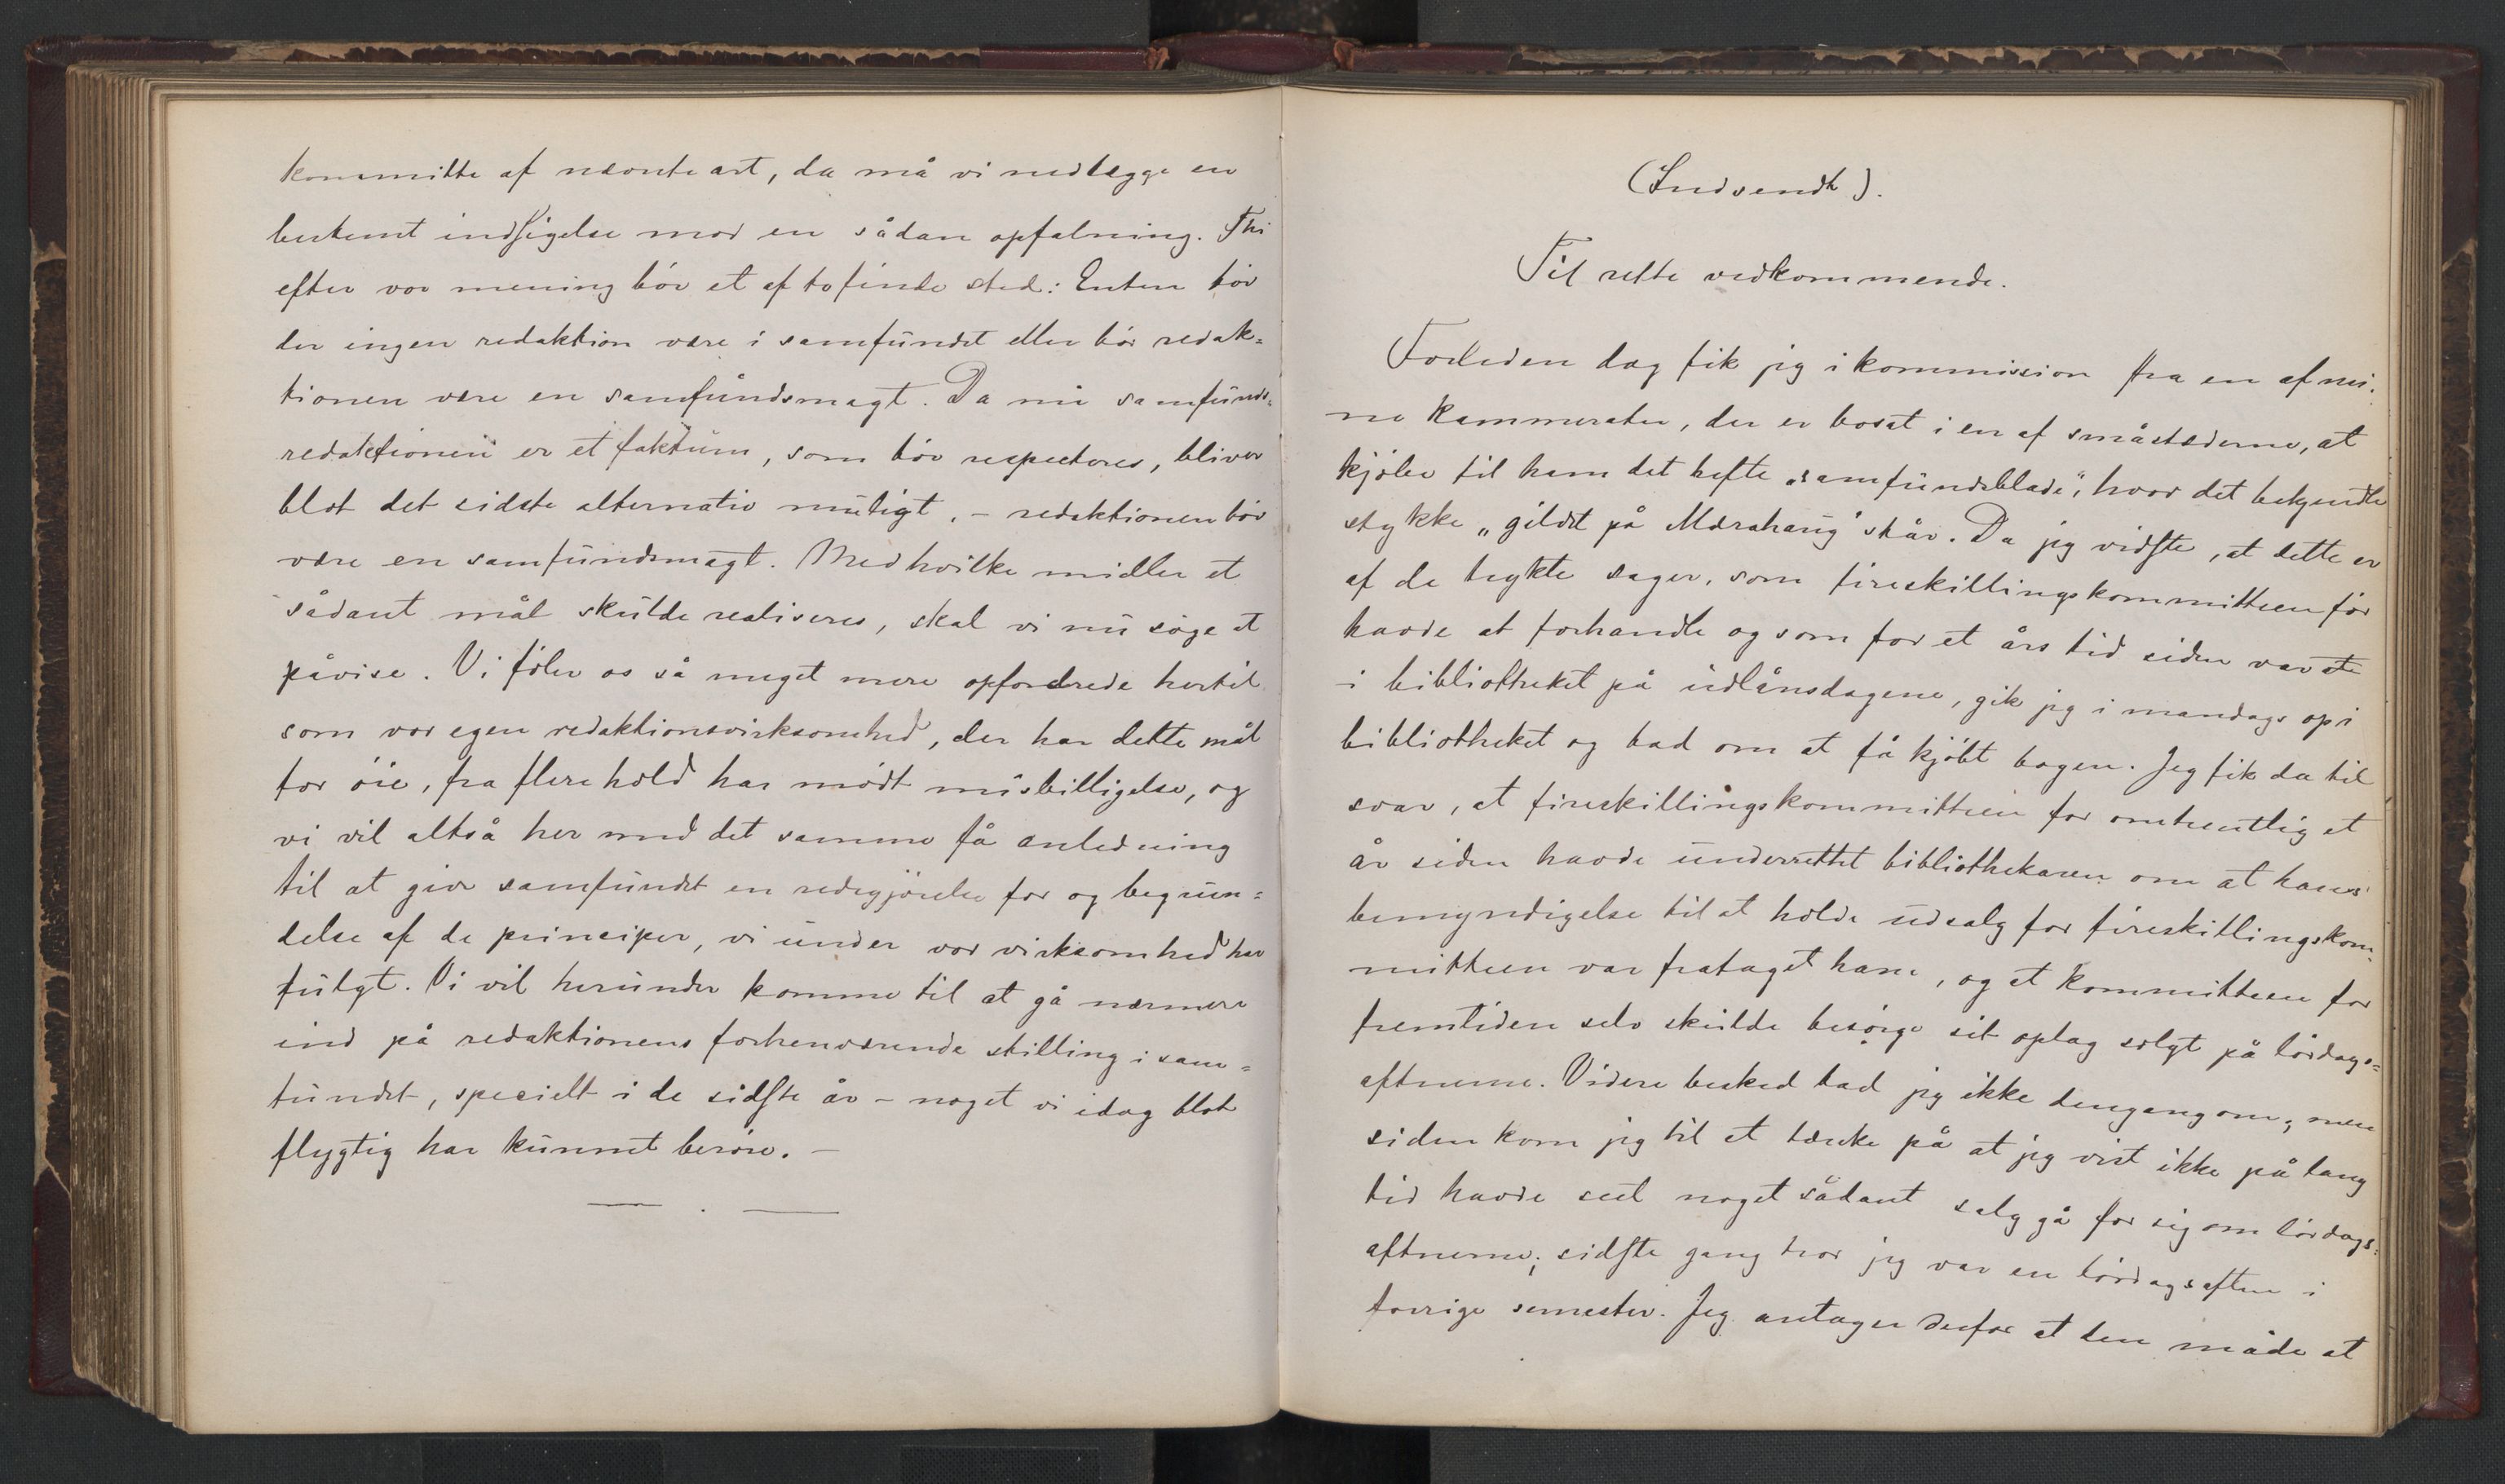 kommitte af nævnte art, da må vi nedlægge en
bestemt indsigelse mod en sådan opfatning. Thi
efter vor mening bör et af to finde sted: Enten bör
der ingen redaktion være i samfundet eller bör redak=
tionen være en samfundsmagt. Da nu samfunds=
redaktionen er et faktum, som bör respecteres, bliver
blot det sidste alternativ muligt, – redaktionen bör
være en samfundsmagt. Med hvilke midler et
sådant mål skulde realiseres, skal vi nu söge at
påvise. Vi föler os så meget mere opfordrede hertil
som vor egen redaktionsvirksomhed, der har dette mål
for öie, fra flere hold har mödt misbilligelse, og
vi vil altså her med det samme få anledning
til at give samfundet en redegjörelse for og begrun=
delse af de principer, vi under vor virksomhed har
fulgt. Vi vil herunder komme til at gå nærmere
ind på redaktionens forhenværende stilling i sam=
fundet, specielt i de sidste år – noget vi idag blot
flygtig har kunnet beröre. –
(Indsendt).
Til rette vedkommende.
Forleden dag fik jeg i kommission fra en af mi=
ne kammerater, der er bosat i en af småstæderne, at
kjöbe til ham det hefte „samfundsblade“, hvor det bekjendte
stykke „gildet på Mærahaug“ står. Da jeg vidste, at dette er
af de trykte sager, som fireskillingskommitteen för
havde at forhandle og som for et års tid siden var ude
i bibliotheket på udlånsdagene, gik jeg i mandags op i
bibliotheket og bad om at få kjöbt bogen. Jeg fik da til
svar, at fireskillingskommitteen for omtrentlig et
år siden havde underrettet bibliothekaren om at hans
bemyndigelse til at holde udsalg for fireskillingskom=
mitteen var frataget ham, og at kommitteen for
fremtiden selv skulde besörge sit oplag solgt på lördags=
aftnerne. Videre besked bad jeg ikke dengang om; men
siden kom jeg til at tænke på at jeg vist ikke på lang
tid havde seet noget sådant salg gå for sig om lördags=
aftnerne; sidste gang tror jeg var en lördagsaften i
forrige semester. Jeg antager derfor at den måde at